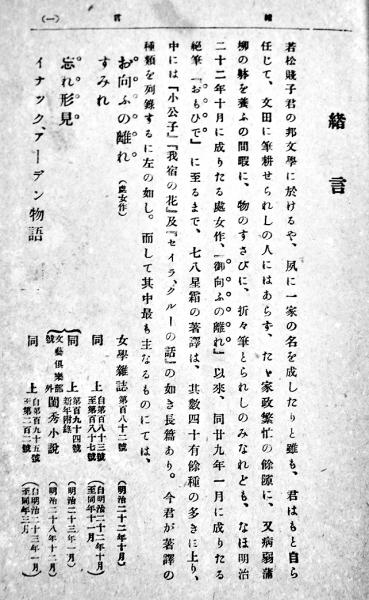 緒言
(一)
緒言
若松賤子君の邦文學に於けるや、夙に一家の名を成したりと雖も、君はもと自ら
任じて、文田に筆耕せられしの人にはあらず、たゞ家政繁忙の餘隙に、又病弱蒲
柳の躰を養ふの間暇に、物のすさびに、折々筆とられしのみなれども、なほ明治
二十二年十月に成りたる處女作、『御向ふの離れ』以來、同廿九年一月に成りたる
絶筆『おもひで』に至るまで、七八星霜の著譯は、其數四十有餘種の多きに上り、
中には『小公子』『我宿の花』及『セイラ、クルーの話』の如き長篇あり。今君が著譯の
種類を列錄するに左の如し。而して其中最も主なるものにては、
お向ふの離れ。(處女作) 女學雜誌第百八十二號(明治二十二年十月)
すみれ 同上自第百八十三號至第百八十七號(自明治二十二年十月至同年十一月)
忘れ形見 同上第百九十四號新年附錄(明治二十三年一月)
文藝俱樂部號外閨秀小說(明治二十八年十二月)
イナック、アーデン物語 同上自第百九十五號至第二百二號(自明治二十三年一月至同年三月)